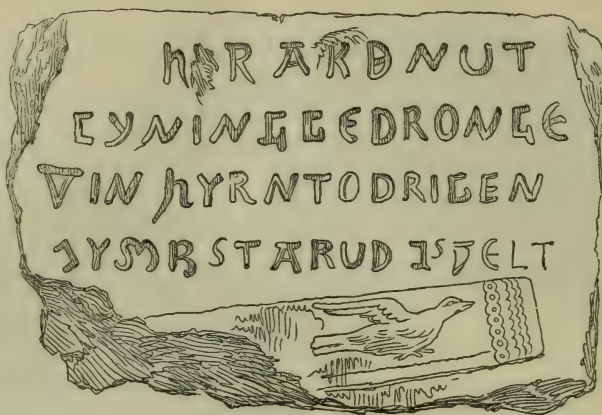 h RAKÐNUT
CYNINGGEDRONGE
VIN hYRNTODRIGEN
JYMRSTARUD ISVELT